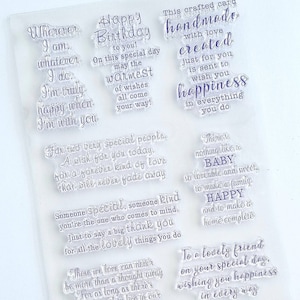 Wherever
I am,
whatever
I do,
I'm truly
happy when
I'm with you.
Happy
Birthday
to you!
On this special day
may the
warmest
of wishes
all come
your way!
This crafted card
handmade
with love
created
just for you
is sent to
wish you
happiness
in everything
you do
For very special people,
A wish for you today,
for a forever kind of love
that will never fade away
There's
nothing like a
BABY
so loveable and sweet,
to make a family
HAPPY
and to make a
home complete
Someone special, someone kind
you're the one who comes to mind,
just to say a big thank you
for all the lovely things you do
Those we love can never
be more than a thought away
for as long as there's
To a lovely friend
on your special day,
wishing you happiness
in every way